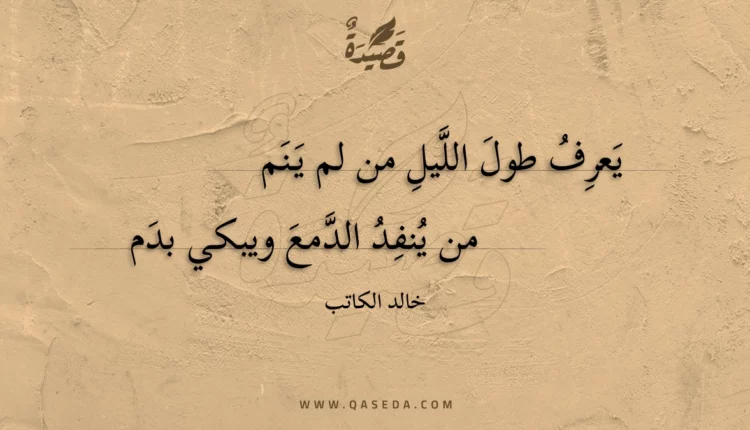 قَصِيدَةٌ
يَعرِفُ طولَ اللَّيلِ من لم يَنَم
من يُنفِدُ الدَّمعَ ويبكي بدَم
خالد الكاتب
WWW.QASEDA.COM